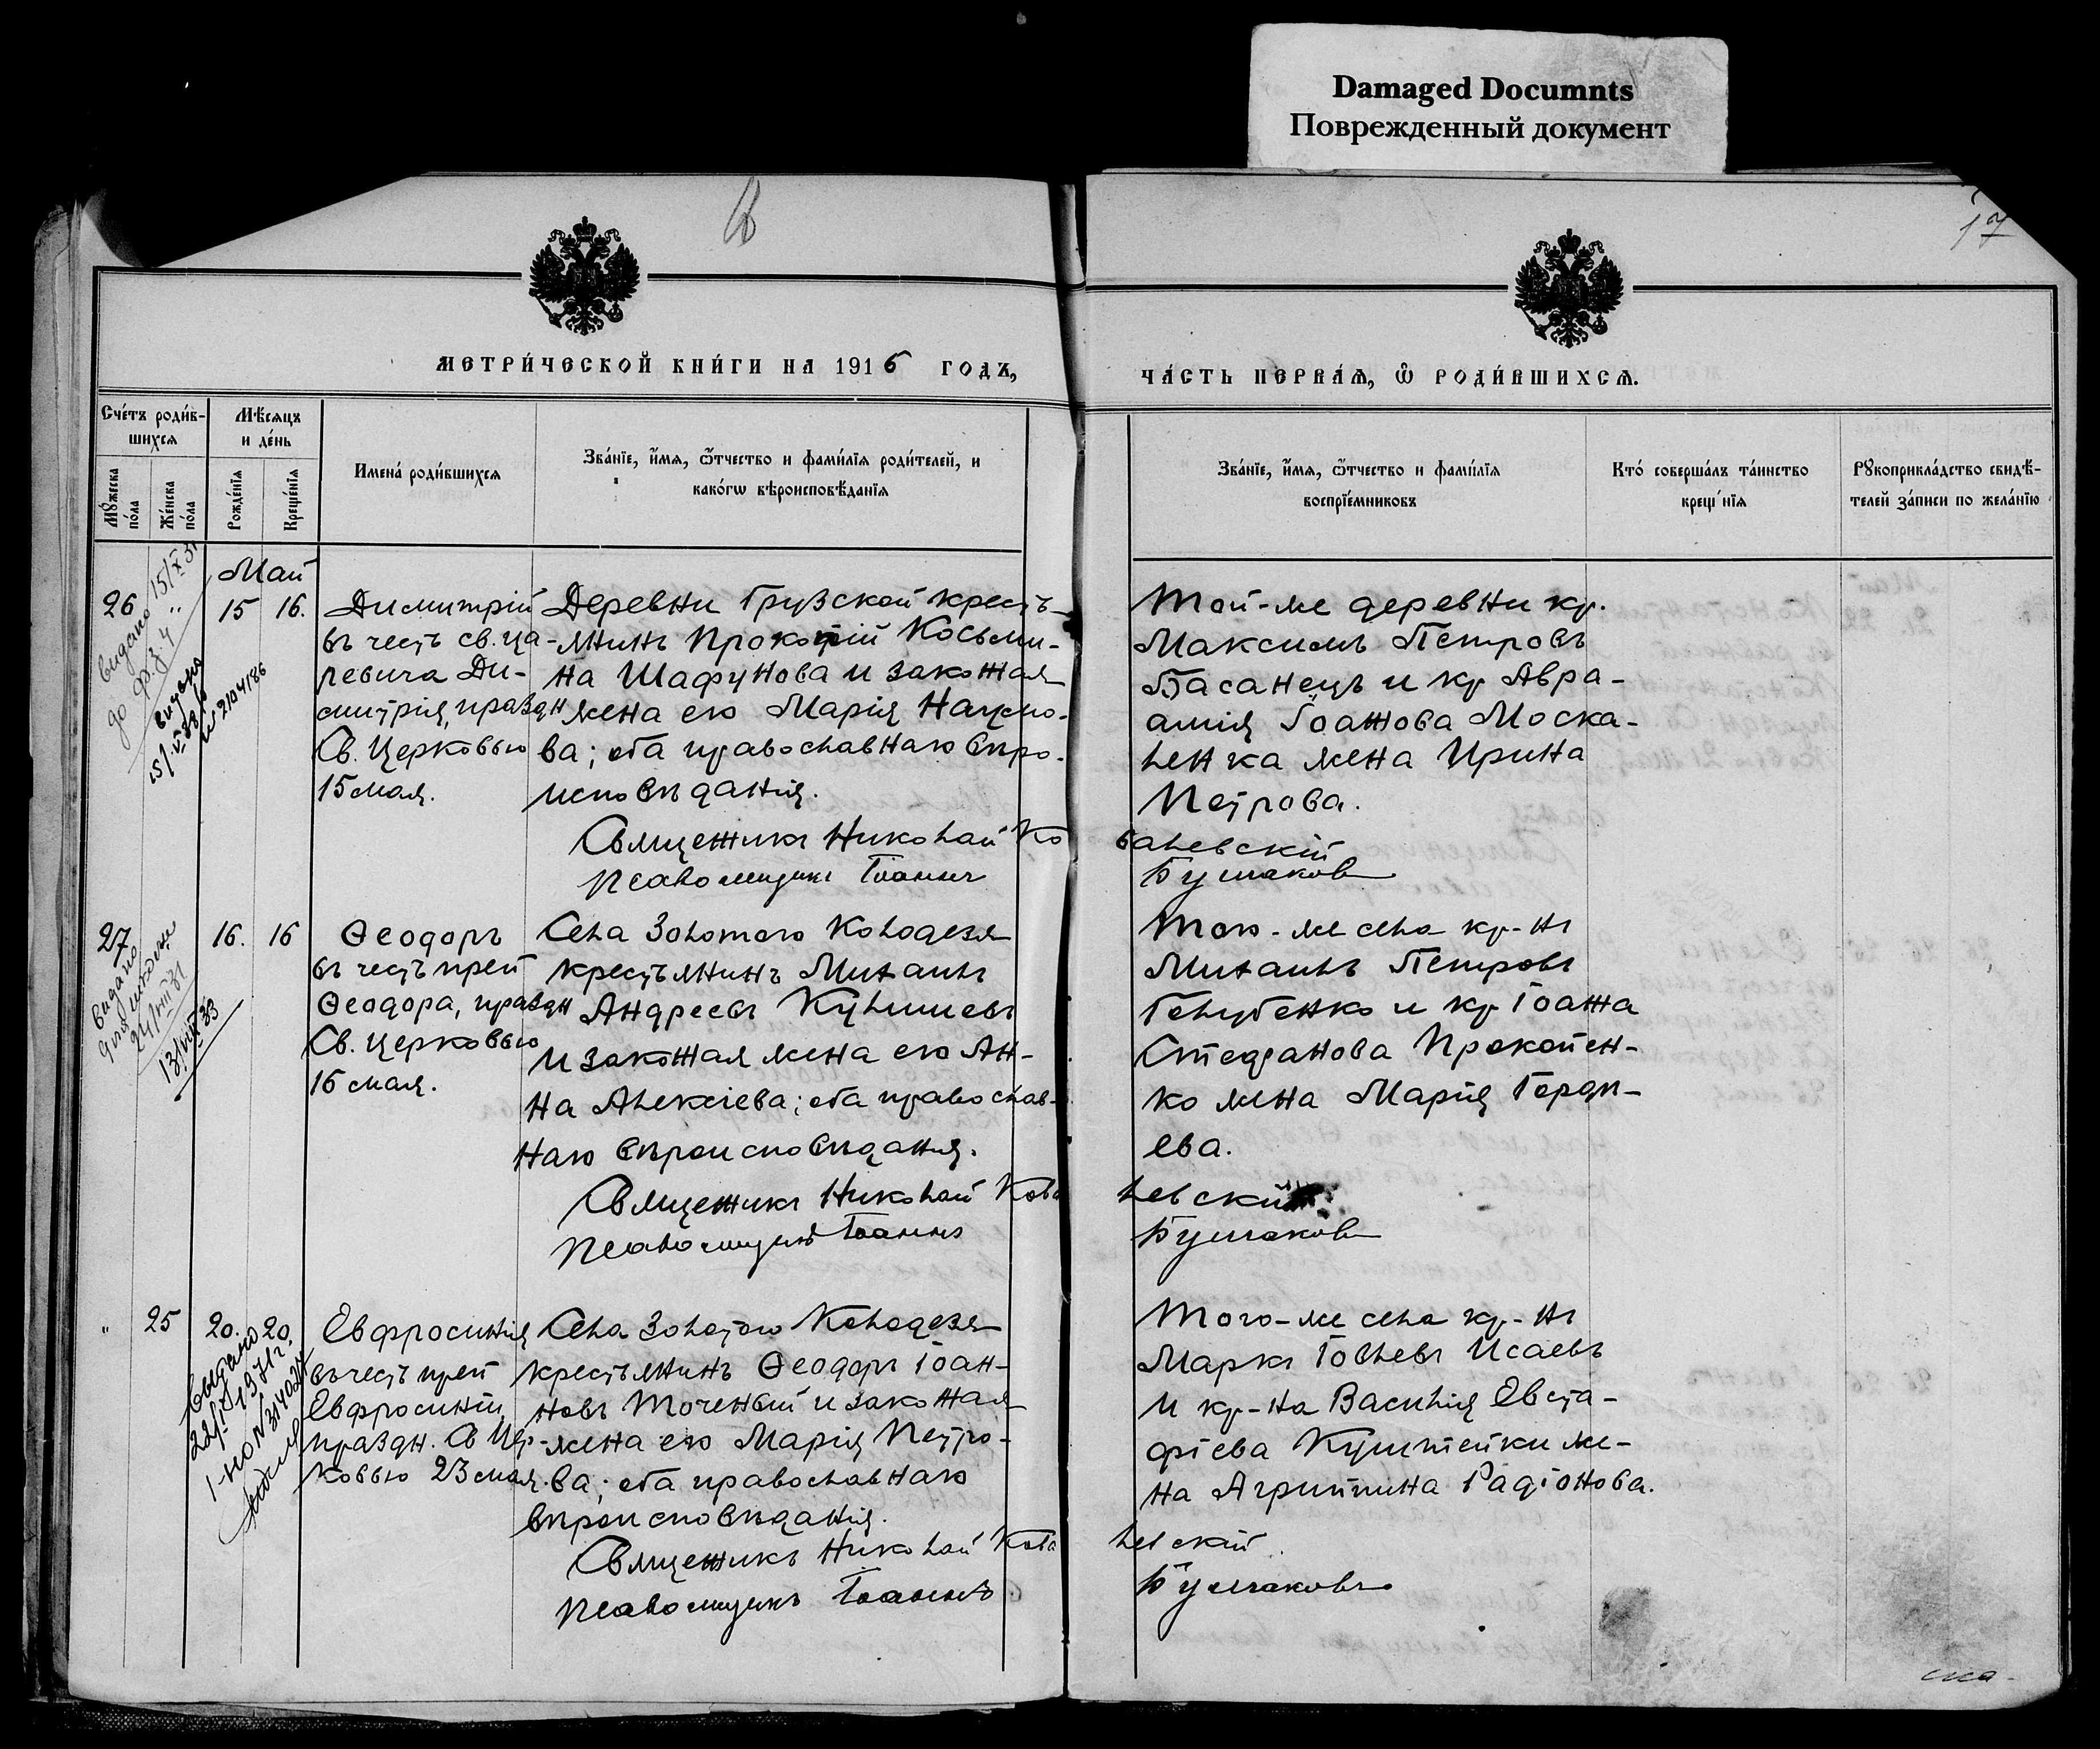 Damaged Documnts
Поврежденный документ
17
МЕТРИ́ЧЕСКОЙ КНИ́ГИ НА 1916 ГОДЪ,
ЧА́СТЬ ПЕРВАѦ, Ѿ РОДИ́ВШИХСѦ.
Сче́тъ роди́в-
шихсѧ
Мѣ́сѧцъ
и де́нь
Мꙋ́жеска
по́ла
Же́нска
по́ла
Рожде́нїѧ
Креще́нїѧ
Имена́ роди́вшихсѧ
Зва́нїе, и́мѧ, ѻ́тчество и фами́лїѧ роди́телей, и
како́гѡ вѣроисповѣ́данїѧ
Зва́нїе, и́мѧ, ѻ́тчество и фами́лїѧ
воспрїе́мниковъ
Кто́ соверша́лъ та́инство
креще́нїѧ
Рꙋкоприкла́дство свидѣ́-
телей за́писи по жела́нїю
Май
26 " 15 16.
Димитрій
въ честь св. ца-
ревича Ди-
митрія, праздн
Св. Церковью
15 мая.
Деревни Грузской кресть-
янинъ Прокопій Косьми-
на Шафунова и законная
жена его Марія Наумо-
ва; оба православнаго вѣро-
исповѣданія.
Той-же деревни кр.
Максимъ Петровъ
Басанецъ и кр Авра-
амія Іоаннова Моска-
ленка жена Ирина
Петрова.
Священникъ Николай Ко
валевскій
Псаломщикъ Іоаннъ
Бушаковъ
видано 15/X 31
до ф.з.у
видана
15/V 38
27 16. 16
Ѳеодоръ
въ честь преп
Ѳеодора, праздн
Св. Церковью
16 мая.
Села Золотого Колодезя
крестьянинъ Михаилъ
Андреевъ Кулишевъ
и законная жена его Ан-
на Алексіева; оба православ-
наго вѣроисповѣданія.
Того-же села кр-нъ
Михаилъ Петровъ
Голубенко и кр Іоанна
Стефанова Прокопен-
ко жена Марія Горди-
ева.
Священникъ Николай Кова
левскій
Псаломщикъ Іоаннъ
Бушаковъ
видано
для школи
24/VIII 31
13/VIII 33
" 25 20. 20.
Евфросинія
въ честь преп
Евфросиніи,
праздн. Св Цер-
ковью 23 мая.
Села Золотого Колодезя
крестьянинъ Ѳеодоръ Іоан-
новъ Точеный и законная
жена его Марія Петро-
ва; оба православнаго
вѣроисповѣданія.
Того-же села кр-нъ
Маркъ Іовлевъ Исаевъ
и кр-на Василія Евста-
фіева Куштейки же-
на Агриппина Радіонова.
Священникъ Николай Кова
левскій
Псаломщикъ Іоаннъ
Бушаковъ
Выдано
22/I 1971 г.
I-НО № 314024